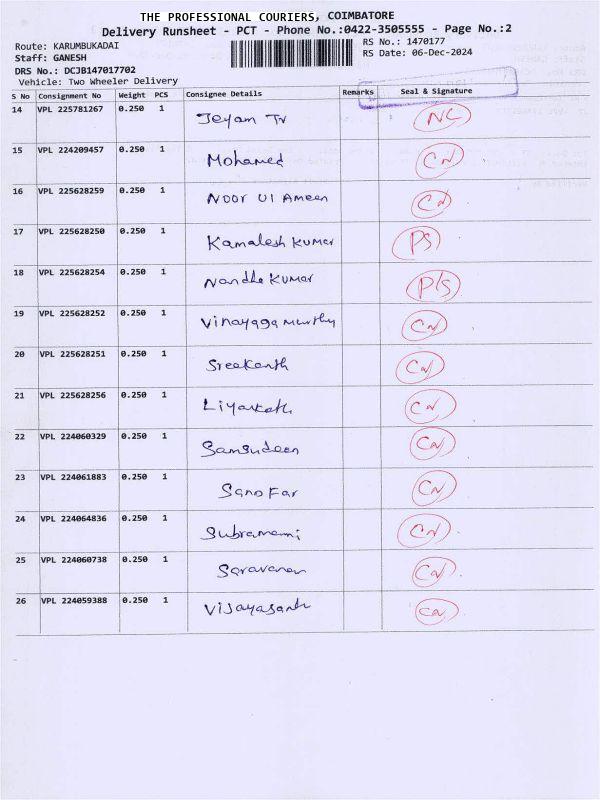 THE PROFESSIONAL COURIERS, COIMBATORE
Delivery Runsheet - PCT - Phone No.:0422-3505555 - Page No.:2
Route: KARUMBUKADAI
RS No.: 1470177
Staff: GANESH
RS Date: 06-Dec-2024
DRS No.: DCJB147017702
Vehicle: Two Wheeler Delivery
S No Consignment No Weight PCS Consignee Details Remarks Seal & Signature
14 VPL 225781267 0.250 1 Jeyam Tr NC
15 VPL 224209457 0.250 1 Mohamed CN
16 VPL 225628259 0.250 1 Noor Ul Ameen CN
17 VPL 225628250 0.250 1 Kamalesh Kumar PS
18 VPL 225628254 0.250 1 Nandha Kumar P/S
19 VPL 225628252 0.250 1 Vinayaga Murthy CN
20 VPL 225628251 0.250 1 Sreekanth CN
21 VPL 225628256 0.250 1 Liyakath CN
22 VPL 224060329 0.250 1 Samsudeen CN
23 VPL 224061883 0.250 1 Sano Far CN
24 VPL 224064836 0.250 1 Subramani CN
25 VPL 224060738 0.250 1 Saravanan CN
26 VPL 224059388 0.250 1 Vijayasanth CN